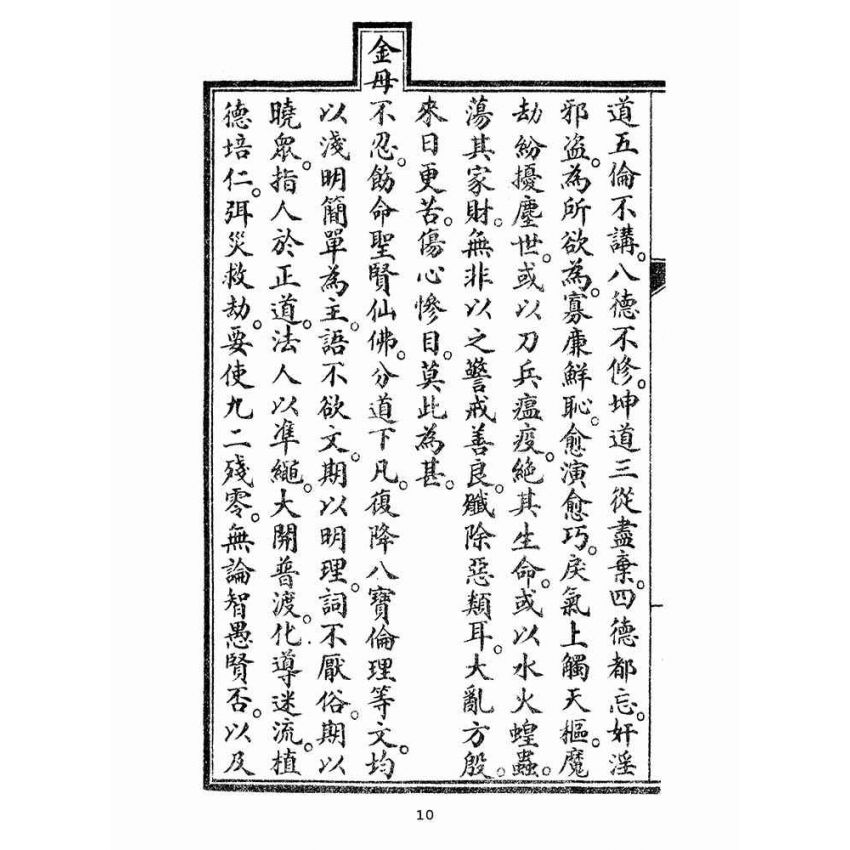 道五倫不講。八德不修。坤道三從盡棄。四德都忘。奸淫
邪盜。為所欲為。寡廉鮮恥。愈演愈巧。戾氣上觸天樞。魔
劫紛擾塵世。或以刀兵瘟疫。絕其生命。或以水火蝗蟲。
蕩其家財。無非以之警戒善良。殲除惡類耳。大亂方殷。
來日更苦。傷心慘目。莫此為甚。
金母不忍。飭命聖賢仙佛。分道下凡。復降八寶倫理等文。均
以淺明簡單為主。語不欲文。期以明理。詞不厭俗。期以
曉眾。指人於正道。法人以準繩。大開普渡。化導迷流。植
德培仁。弭災救劫。要使九二殘零。無論智愚賢否。以及
10